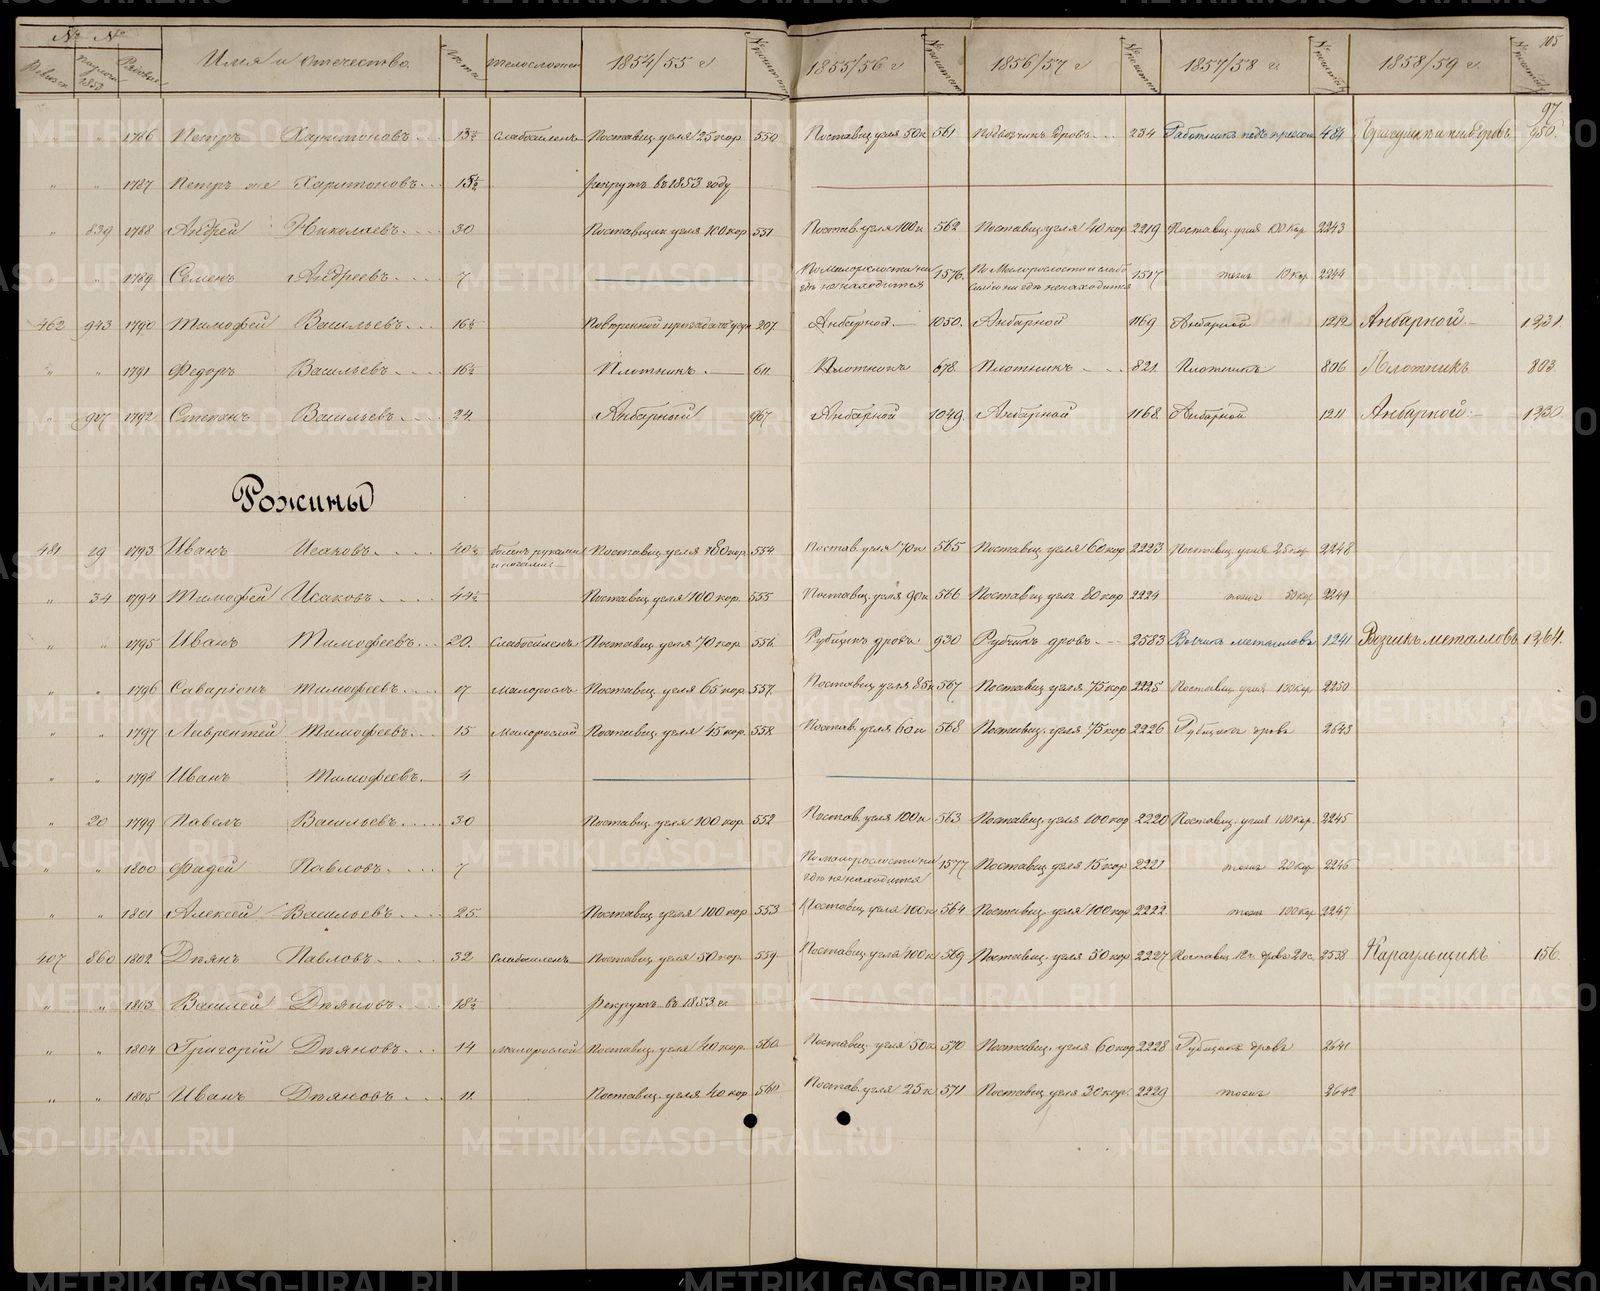 № № Имя и отчество. Лета Телосложен. 1854/55 г № 1855/56 г № 1856/57 г № 1857/58 г. № 1858/59 г. № 105
97
" " 1786 Петръ Харитоновъ 13½ Слабосиленъ Поставщ. угля 25 кор 550 Поставщ. угля 50 к 561 Подвозчикъ дровъ 234 Работникъ подъ прессом 484 950.
" " 1787 Петръ же Харитоновъ 15½ рекрутъ въ 1853 году
" 839 1788 Андрей Николаевъ 30 Поставщик угля 100 кор 551 Постав. угля 100 к 562 Поставщ. угля 40 кор 2219 Поставщ. угля 100 кор 2243
" " 1789 Семенъ Андреевъ 7 По малорослости ни где не находится 1576. По малорослости и слабосилию ни где не находится 1517 тогж 10 кор 2244
462 943 1790 Тимофей Васильевъ 16½ 207 Анбарной 1050. Анбарной 1169 Анбарной 1212 Анбарной 1231.
" " 1791 Федоръ Васильевъ 16½ Плотникъ 611 Плотникъ 678 Плотникъ 821 Плотникъ 806 Плотникъ 803
" 917 1792 Степанъ Васильевъ 24. Анбарный 967 Анбарной 1049. Анбарной 1168. Анбарной 1211 Анбарной 1230.
Рожины
481 19 1793 Иванъ Исаковъ 40½ боленъ руками и ногами Поставщ. угля 80 кор 554 Постав. угля 70 к 565 Поставщ. угля 60 кор 2223 Поставщ. угля 25 кор 2248
" 34 1794 Тимофей Исаковъ 44½ Поставщ. угля 100 кор. 555 Поставщ. угля 90 к 566 Поставщ угля 80 кор 2224 тогж 50 кор 2249
" " 1795 Иванъ Тимофеевъ 20. Слабосиленъ Поставщ. угля 70 кор. 556. Рубщикъ дровъ 930 Рубщикъ дровъ 2583 Возчикъ металловъ 1241 Возчикъ металловъ 1264.
" " 1796 Саваріонъ Тимофеевъ 17 малорослъ Поставщ. угля 65 кор 557. Поставщ. угля 85 к 567 Поставщ. угля 75 кор 2225 Поставщ. угля 100 кор 2250
" " 1797 Лаврентей Тимофеевъ 15 Малорослой Поставщ. угля 45 кор. 558 Постав. угля 60 к 568 Поставщ. угля 75 кор 2226 Рубщикъ дровъ 2643
" " 1798 Иванъ Тимофеевъ. 4
" 20 1799 Павелъ Васильевъ 30 Поставщ. угля 100 кор. 552 Постав. угля 100 к 563 Поставщ. угля 100 кор 2220 Поставщ. угля 100 кор. 2245
" " 1800 Фадей Павловъ 7 По малорослости ни где не находится 1577 Поставщ угля 15 кор 2221 тогж 20 кор 2246
" " 1801 Алексей Васильевъ 25. Поставщ угля 100 кор 553 Поставщ угля 100 к 564 Поставщ. угля 100 кор 2222. тогж 100 кор 2247
407 860 1802 Демянъ Павловъ 32 Слабосиленъ Поставщ. угля 50 кор. 559 Поставщ. угля 100 к 569 Поставщ. угля 50 кор 2227 2538 Караульщикъ 156.
" " 1803 Василей Демяновъ 18½ рекрутъ въ 1853. г.
" " 1804 Григорій Демяновъ 14 Малорослой Поставщ. угля 40 кор. 560. Поставщ. угля 50 к 570 Поставщ. угля 60 кор 2228 Рубщикъ дровъ 2641
" " 1805 Иванъ Демяновъ 11. Поставщ. угля 40 кор 561 Постав. угля 25 к 571 Поставщ. угля 30 кор. 2229 тогж 2642
METRIKI.GASO-URAL.RU